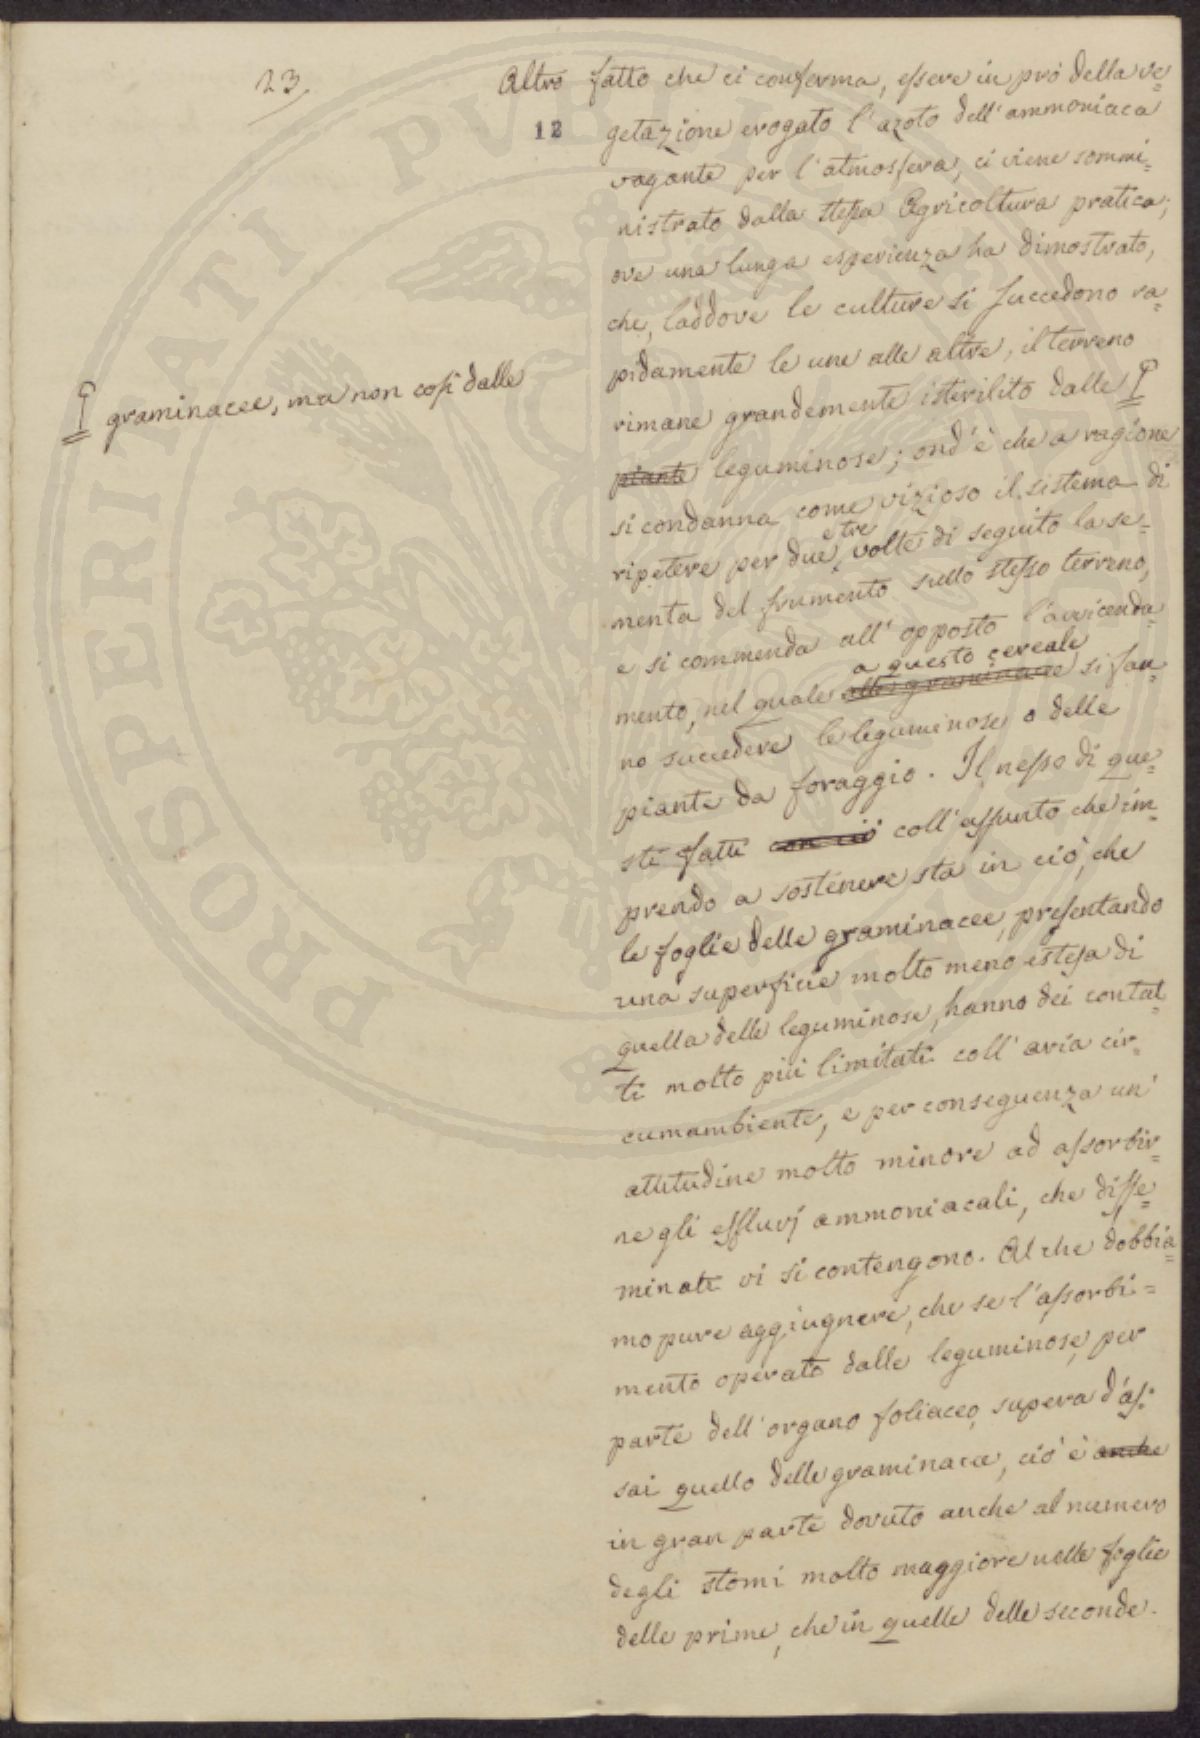 23.
12
Altro fatto che ci conferma, essere in prò della ve=
getazione erogato l'azoto dell'ammoniaca
vagante per l'atmosfera, ci viene sommi=
nistrato dalla stessa Agricoltura pratica;
ove una lunga esperienza ha dimostrato,
che, laddove le culture si succedono ra=
pidamente le une alle altre, il terreno
rimane grandemente isterilito dalle
graminacee, ma non così dalle
piante leguminose; ond'è che a ragione
si condanna come vizioso il sistema di
e tre
ripetere per due volte di seguito la se=
menta del frumento sullo stesso terreno,
e si commenda all'opposto l'avvicenda=
a questo cereale
mento, nel quale alle graminacee si fan=
no succedere le leguminose o delle
piante da foraggio. Il nesso di que=
sti fatti con ciò coll'assunto che im=
prendo a sostenere sta in ciò, che
le foglie delle graminacee, presentando
una superficie molto meno estesa di
quella delle leguminose, hanno dei contat=
ti molto più limitati coll'aria cir=
cumambiente, e per conseguenza un'
attitudine molto minore ad assorbir=
ne gli effluvj ammoniacali, che disse=
minati vi si contengono. Al che dobbia=
mo pure aggiugnere, che se l'assorbi=
mento operato dalle leguminose, per
parte dell'organo foliaceo, supera d'as=
sai quello delle graminacee, ciò è anche
in gran parte dovuto anche al numero
degli stomi molto maggiore nelle foglie
delle prime, che in quelle delle seconde.
PROSPERITATI PVBLICAE